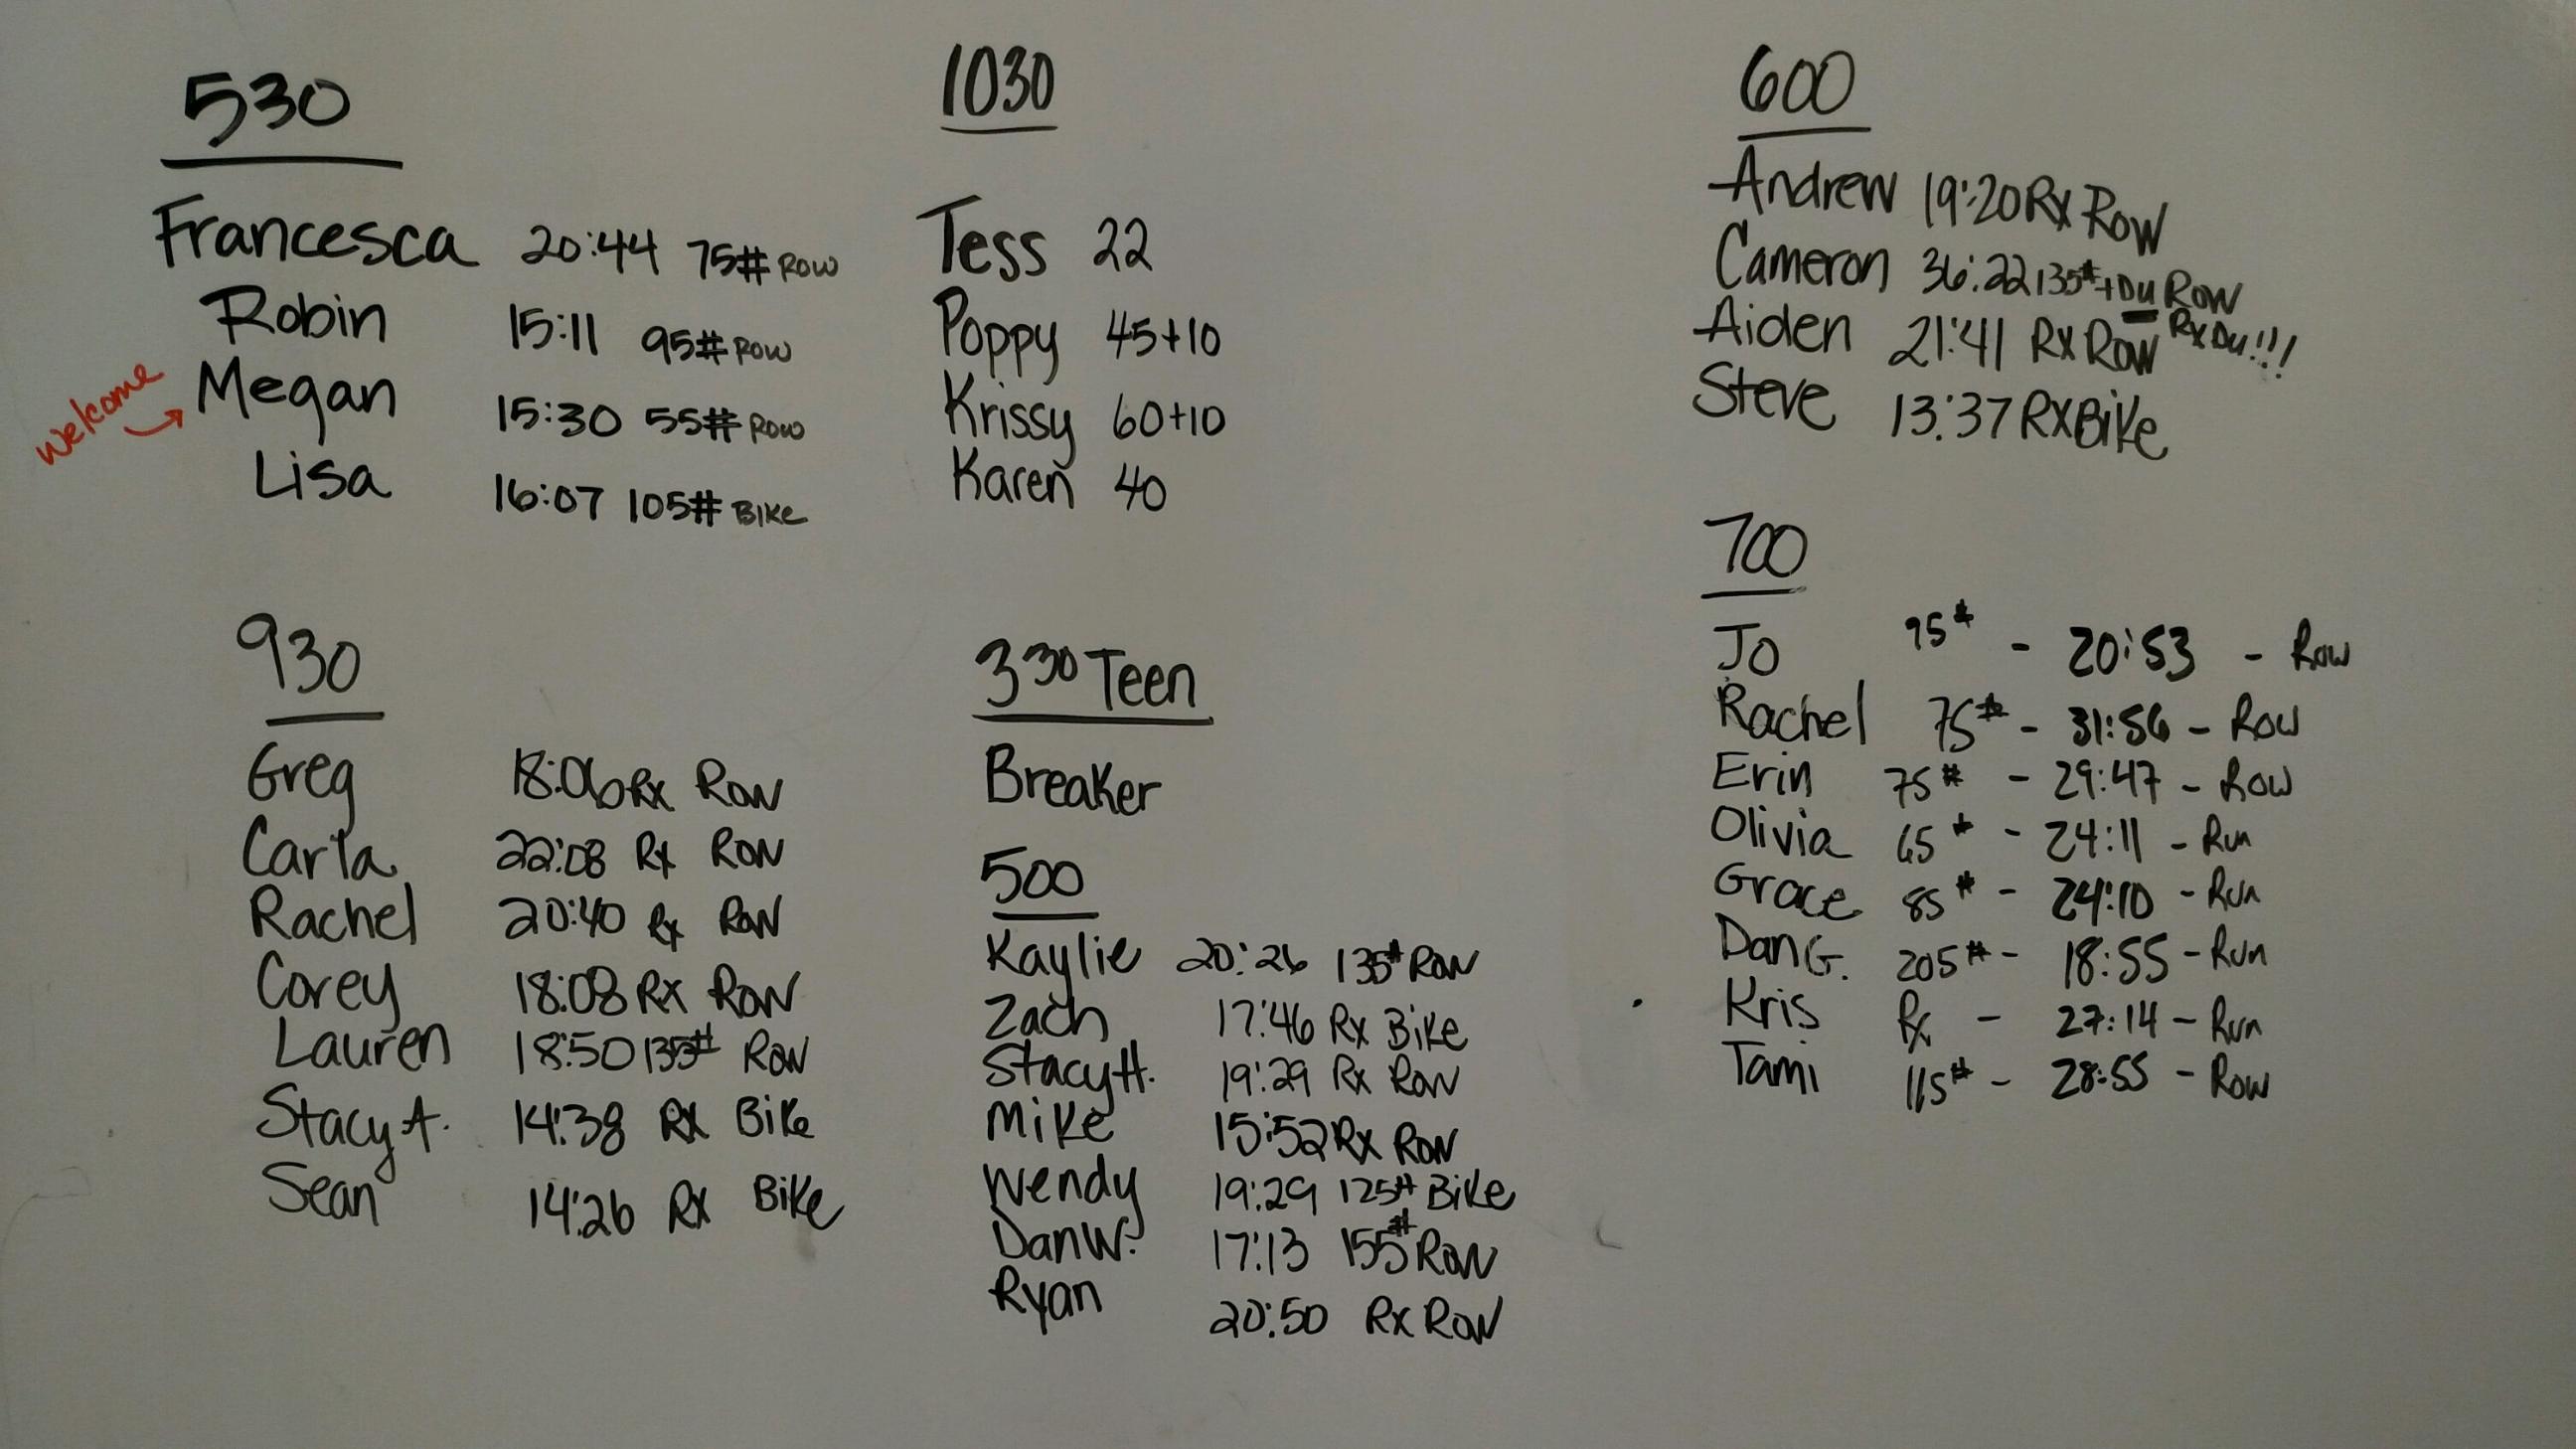 530
Francesca 20:44 75# Row
Robin 15:11 95# Row
Welcome → Megan 15:30 55# Row
Lisa 16:07 105# Bike
930
Greg 18:06 Rx Row
Carla 22:08 Rx Row
Rachel 20:40 Rx Row
Corey 18:08 Rx Row
Lauren 18:50 135# Row
Stacy A. 14:38 Rx Bike
Sean 14:26 Rx Bike
1030
Tess 22
Poppy 45+10
Krissy 60+10
Karen 40
3 30 Teen
Breaker
500
Kaylie 20:26 135# Row
Zach 17:46 Rx Bike
Stacy H. 19:29 Rx Row
Mike 15:52 Rx Row
Wendy 19:29 125# Bike
Dan W. 17:13 155# Row
Ryan 20:50 Rx Row
600
Andrew 19:20 Rx Row
Cameron 36:22 135# + Du Row
Rx Du!!!
Aiden 21:41 Rx Row
Steve 13:37 Rx Bike
700
Jo 95# - 20:53 - Row
Rachel 75# - 31:56 - Row
Erin 75# - 29:47 - Row
Olivia 65# - 24:11 - Run
Grace 85# - 24:10 - Run
Dan G. 205# - 18:55 - Run
Kris Rx - 27:14 - Run
Tami 115# - 28:55 - Row